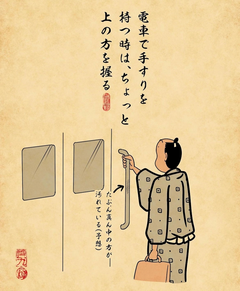 電車で手すりを
持つ時は、ちょっと
上の方を握る
たぶん真ん中の方が
汚れている(予想)